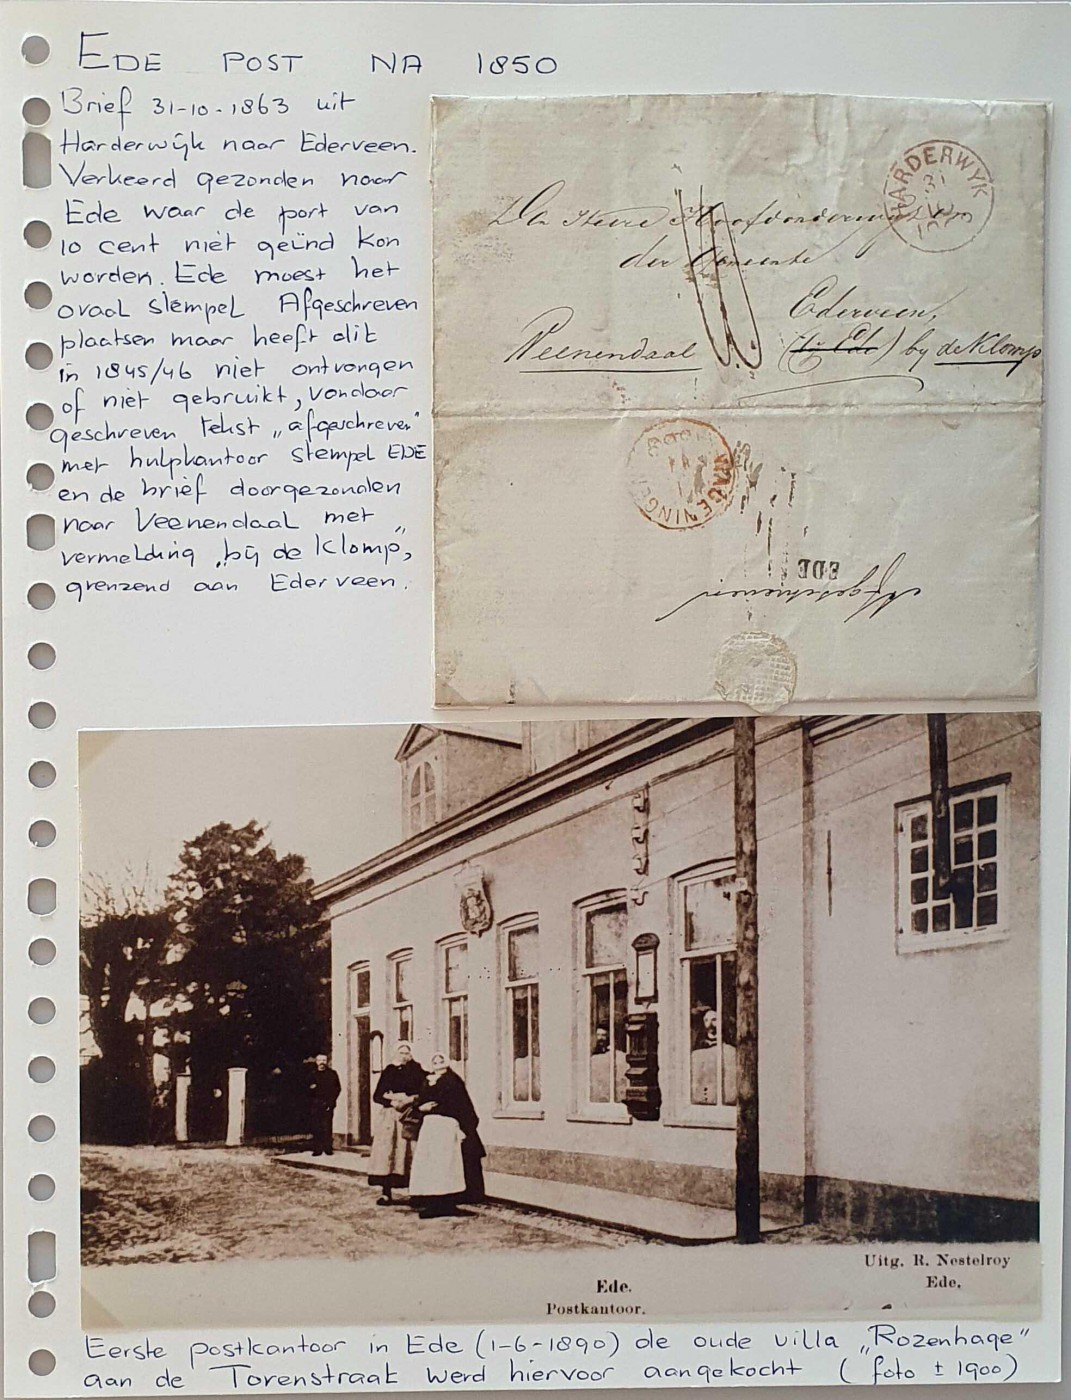 EDE POST NA 1850
Brief 31-10-1863 uit
Harderwijk naar Ederveen.
Verkeerd gezonden naar
Ede waar de port van
10 cent niet geïnd kon
worden. Ede moest het
ovaal stempel Afgeschreven
plaatsen maar heeft dit
in 1845/46 niet ontvangen
of niet gebruikt, vandaar
geschreven tekst „afgeschreven"
met hulpkantoor stempel EDE
en de brief doorgezonden
naar Veenendaal met „
vermelding „bij de Klomp,
grenzend aan Ederveen.
HARDERWYK
31
Den Heere Hoofdonderwijzer
der Gemeente
Ederveen,
Veenendaal (bij Ede) by de Klomp
WAGENINGEN
EDE
Afgeschreven
Uitg. R. Nestelroy
Ede.
Ede.
Postkantoor.
Eerste postkantoor in Ede (1-6-1890) de oude villa „Rozenhage"
aan de Torenstraat werd hiervoor aangekocht (foto ± 1900)